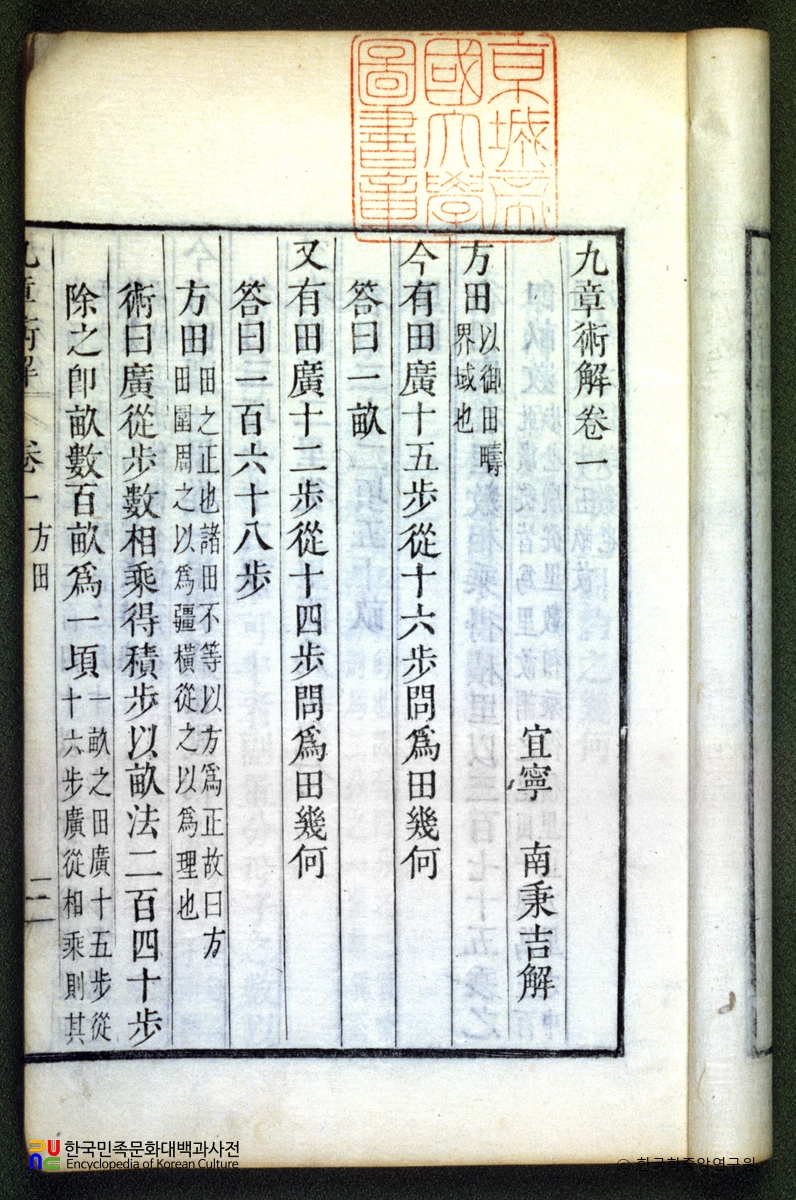 京城帝
國大學
圖書章
九章術解卷一
宜寧 南秉吉解
方田以御田疇
界域也
今有田廣十五步從十六步問爲田幾何
答曰一畝
又有田廣十二步從十四步問爲田幾何
答曰一百六十八步
方田田之正也諸田不等以方爲正故曰方
田圍周之以爲疆橫從之以爲理也
術曰廣從步數相乘得積步以畝法二百四十步
除之卽畝數百畝爲一頃一畝之田廣十五步從
十六步廣從相乘則其
九章術解 卷一 方田
한국민족문화대백과사전
Encyclopedia of Korean Culture
© 한국학중앙연구원